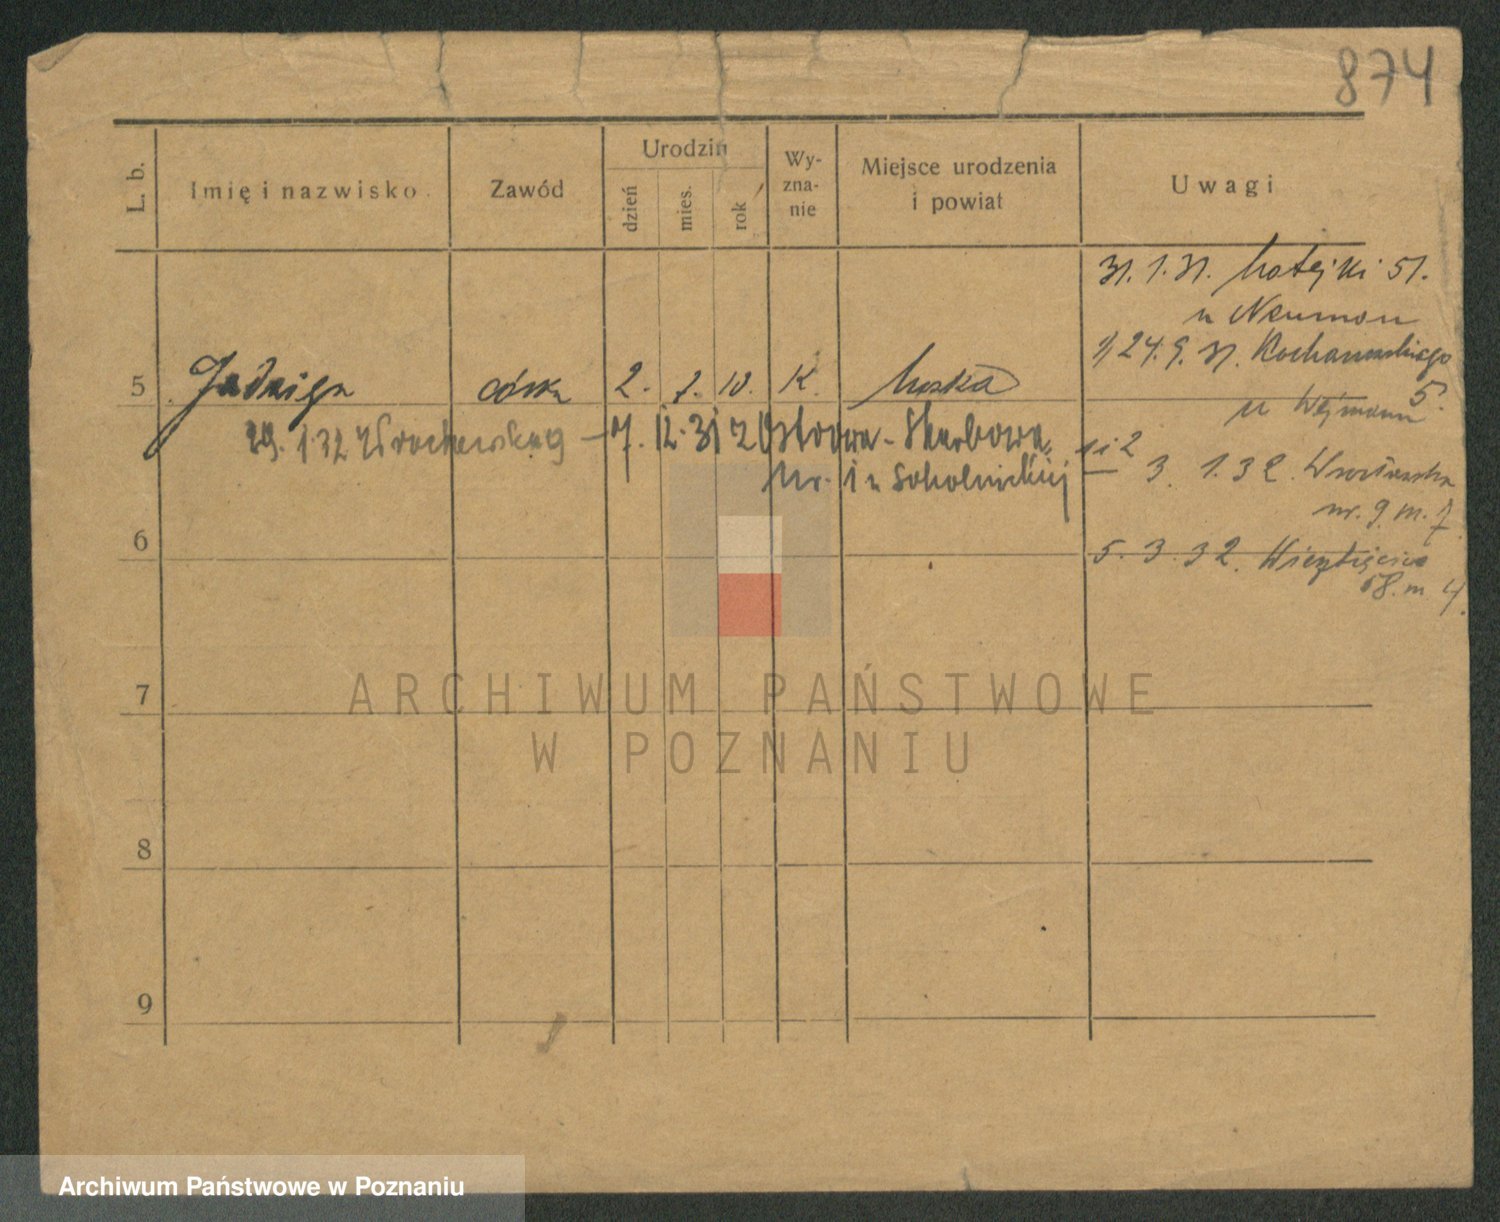 874
L. b.
Imię i nazwisko
Zawód
Urodzin
dzień
mies.
rok
Wy-
zna-
nie
Miejsce urodzenia
i powiat
Uwagi
31. 1. 31. Matejki 51.
u Neuman
1) 24. 9. 31. Kochanowskiego
5.
u Wejmann
5 Jadwiga córka 2. 10. K.
29. 1. 32 7. 12. 31 z Ostrowa - Skarbowa
Nr. 1 u Sokolnickiej
3. 1. 32.
nr. 9 m. 7
6
5. 3. 32.
58. m 4.
7
8
9
ARCHIWUM PAŃSTWOWE
W POZNANIU
Archiwum Państwowe w Poznaniu